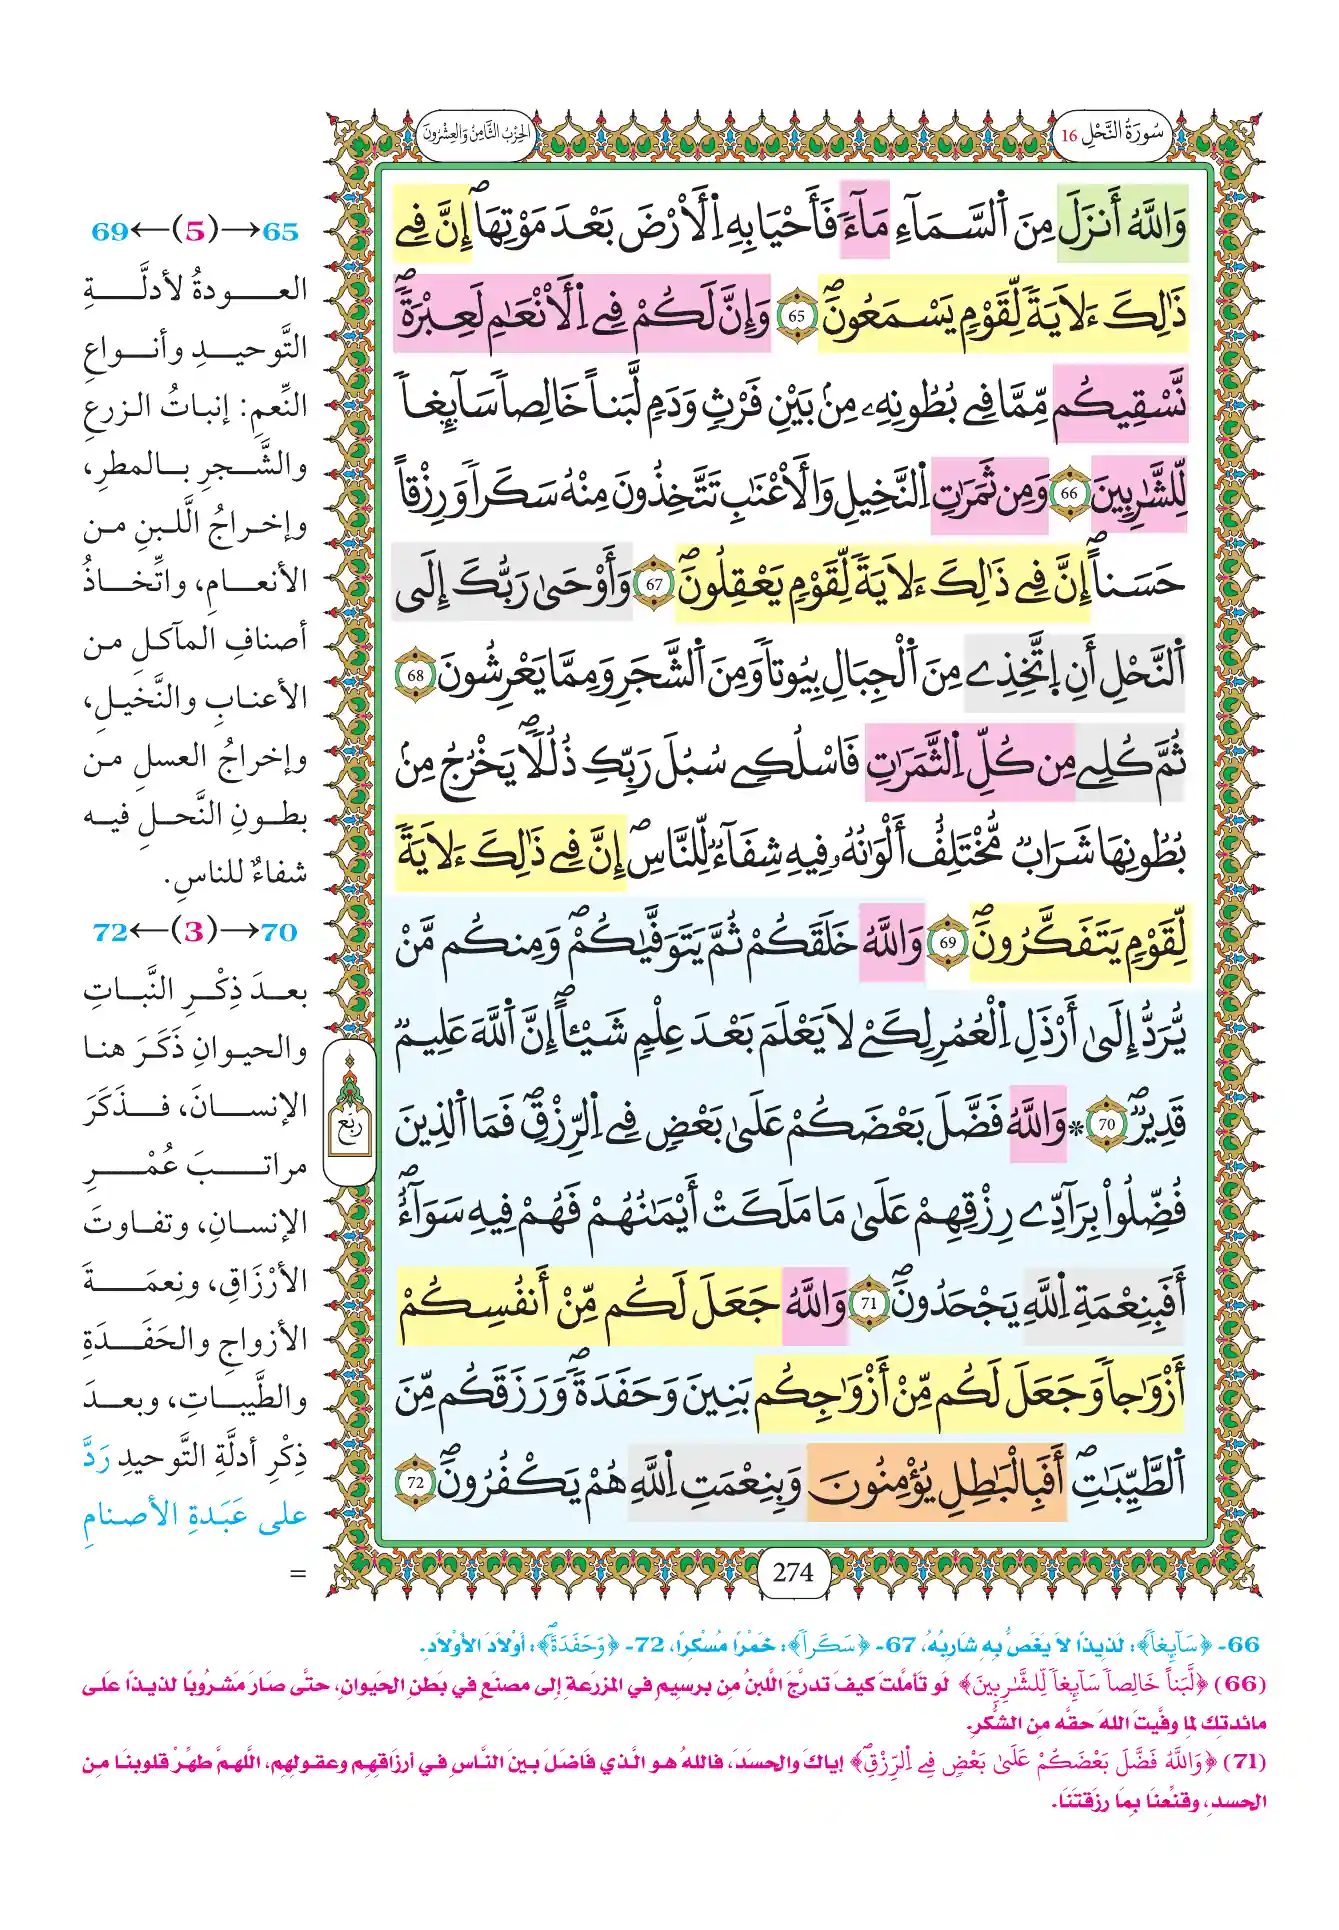 سُورَةُ النَّحْلِ 16
الحِزْبُ الثَّامِنُ وَالعِشْرُونَ
وَاللَّهُ أَنزَلَ مِنَ اَلسَّمَآءِ مَآءٗ فَأَحْيَا بِهِ اِلَارْضَ بَعْدَ مَوْتِهَآۖ إِنَّ فِے
ذَٰلِكَ ءَلَايَةٗ لِّقَوْمٖ يَسْمَعُونَۖ 65 وَإِنَّ لَكُمْ فِے اِلَانْعَٰمِ لَعِبْرَةٗۖ
نَّسْقِيكُم مِّمَّا فِے بُطُونِهِۦ مِنۢ بَيْنِ فَرْثٖ وَدَمٖ لَّبَناً خَالِصاٗ سَآئِغاٗ
لِّلشَّٰرِبِينَ 66 وَمِن ثَمَرَٰتِ اِلنَّخِيلِ وَالَاعْنَٰبِ تَتَّخِذُونَ مِنْهُ سَكَراٗ وَرِزْقاً
حَسَناًۖ إِنَّ فِے ذَٰلِكَ ءَلَايَةٗ لِّقَوْمٖ يَعْقِلُونَۖ 67 وَأَوْحَىٰ رَبُّكَ إِلَى
اَلنَّحْلِ أَنِ اِتَّخِذِے مِنَ اَلْجِبَالِ بِيُوتاٗ وَمِنَ اَلشَّجَرِ وَمِمَّا يَعْرِشُونَ 68
ثُمَّ كُلِے مِن كُلِّ اِلثَّمَرَٰتِ فَاسْلُكِے سُبُلَ رَبِّكِ ذُلُلاٗۖ يَخْرُجُ مِنۢ
بُطُونِهَا شَرَابٞ مُّخْتَلِفٌ أَلْوَٰنُهُۥ فِيهِ شِفَآءٞ لِّلنَّاسِۖ إِنَّ فِے ذَٰلِكَ ءَلَايَةٗ
لِّقَوْمٖ يَتَفَكَّرُونَۖ 69 وَاللَّهُ خَلَقَكُمْ ثُمَّ يَتَوَفَّيٰكُمْۖ وَمِنكُم مَّنْ
يُّرَدُّ إِلَىٰ أَرْذَلِ اِلْعُمُرِ لِكَےْ لَا يَعْلَمَ بَعْدَ عِلْمٖ شَيْـٔاًۖ إِنَّ اَللَّهَ عَلِيمٞ
قَدِيرٞۖ 70 ۞ وَاللَّهُ فَضَّلَ بَعْضَكُمْ عَلَىٰ بَعْضٖ فِے اِلرِّزْقِۖ فَمَا اَلذِينَ
فُضِّلُواْ بِرَآدِّے رِزْقِهِمْ عَلَىٰ مَا مَلَكَتَ اَيْمَٰنُهُمْ فَهُمْ فِيهِ سَوَآءٌۖ
اَفَبِنِعْمَةِ اِللَّهِ يَجْحَدُونَۖ 71 وَاللَّهُ جَعَلَ لَكُم مِّنَ اَنفُسِكُمُۥٓ
أَزْوَٰجاٗ وَجَعَلَ لَكُم مِّنَ اَزْوَٰجِكُم بَنِينَ وَحَفَدَةٗۖ وَرَزَقَكُم مِّنَ
اَلطَّيِّبَٰتِۖ أَفَبِالْبَٰطِلِ يُؤْمِنُونَ وَبِنِعْمَتِ اِللَّهِ هُمْ يَكْفُرُونَۖ 72
274
65→(5)←69
العودةُ لأدلَّةِ
التَّوحيدِ وأنواعِ
النِّعمِ: إنباتُ الزرعِ
والشَّجرِ بالمطرِ،
وإخراجُ الَّلبنِ من
الأنعامِ، واتِّخاذُ
أصنافِ المآكلِ من
الأعنابِ والنَّخيلِ،
وإخراجُ العسلِ من
بطونِ النَّحلِ فيه
شفاءٌ للناسِ.
70→(3)←72
بعدَ ذِكْرِ النَّباتِ
والحيوانِ ذَكَرَ هنا
الإنسانَ، فذَكَرَ
مراتبَ عُمْرِ
الإنسانِ، وتفاوتَ
الأرْزَاقِ، ونِعمَةَ
الأزواجِ والحَفَدَةِ
والطَّيباتِ، وبعدَ
ذِكْرِ أدلَّةِ التَّوحيدِ رَدَّ
على عَبَدةِ الأصنامِ
=
ربع
66- ﴿سَآئِغاٗ﴾: لَذِيذًا لاَ يَغَصُّ بِهِ شَارِبُهُ، 67- ﴿سَكَراٗ﴾: خَمْرًا مُسْكِرًا، 72- ﴿وَحَفَدَةٗۖ﴾: أَوْلاَدَ الأَوْلاَدِ.
(66) ﴿لَّبَناً خَالِصاٗ سَآئِغاٗ لِّلشَّٰرِبِينَ﴾ لو تأمَّلتَ كيفَ تدرَّجَ اللَّبنُ من برسيمٍ في المزرعةِ إلى مصنَعٍ في بَطنِ الحَيوانِ، حتَّى صَارَ مَشروبًا لذيذًا على
مائدتِك لما وفَّيتَ اللهَ حقَّه من الشُّكرِ.
(71) ﴿وَاللَّهُ فَضَّلَ بَعْضَكُمْ عَلَىٰ بَعْضٖ فِے اِلرِّزْقِۖ﴾ إياكَ والحسَدَ، فاللهُ هو الَّذي فاضَلَ بينَ النَّاسِ في أرزاقِهِم وعقولِهِم، اللَّهمَّ طهِّرْ قلوبنَا من
الحسدِ، وقنِّعنَا بِمَا رزَقتَنَا.